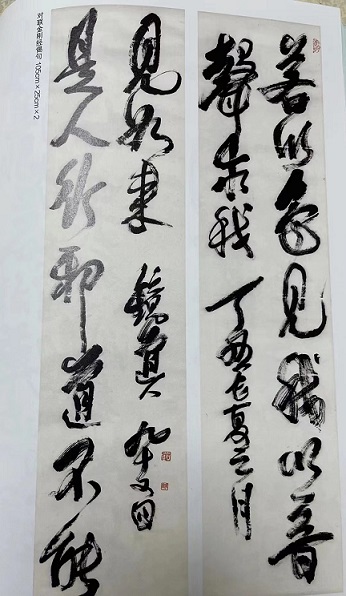 若以色見我以音
聲求我 丁 夏 月
是人行邪道不能
見如來
对联金刚经偈句 105cm×25cm×2